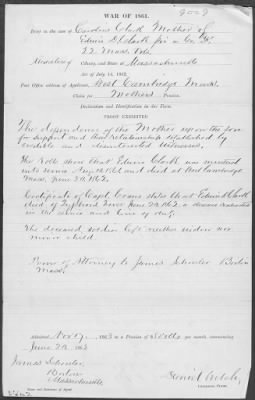 WAR OF 1861.
Brief in the case of Caroline Clark Mother of
Edwin Clark
22 Mass Vols
County, and State of Massachusetts
Act of July 14, 1862.
Post Office address of Applicant, West Cambridge Mass
Claim for Mothers Pension.
Declaration and Identification in due Form.
PROOF EXHIBITED
The dependence of the Mother upon the son
for support and their relationship established by
credible and disinterested witnesses.
The Rolls show that Edwin Clark was mustered
into service and died at West Cambridge
Mass, June 20, 1862.
Certificate of Capt. states that Edwin Clark
died of Typhoid Fever June 20, 1862, a disease contracted
in the service and line of duty.
The deceased soldier left neither widow nor
minor child.
Power of Attorney to James Schouler Boston
Mass.
Admitted Nov 1863 to a Pension of per month, commencing
June 20, 1862
James Schouler,
Boston
Massachusetts
Name and Residence of Agent.
Examining Clerk.